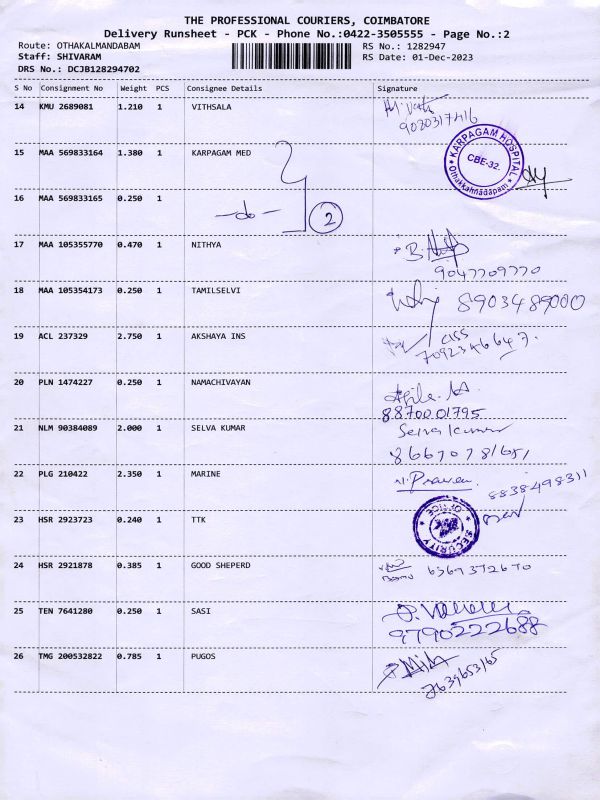 THE PROFESSIONAL COURIERS, COIMBATORE
Delivery Runsheet - PCK - Phone No.:0422-3505555 - Page No.:2
Route: OTHAKALMANDABAM RS No.: 1282947
Staff: SHIVARAM RS Date: 01-Dec-2023
DRS No.: DCJB128294702
S No Consignment No Weight PCS Consignee Details Signature
14 KMU 2689081 1.210 1 VITHSALA
9080317416
15 MAA 569833164 1.380 1 KARPAGAM MED
KARPAGAM HOSPITAL
CBE-32.
Othakkalmandapam
16 MAA 569833165 0.250 1
-do- 2
17 MAA 105355770 0.470 1 NITHYA
9047709770
18 MAA 105354173 0.250 1 TAMILSELVI 8903489000
19 ACL 237329 2.750 1 AKSHAYA INS
7092346647.
20 PLN 1474227 0.250 1 NAMACHIVAYAN
8870001795
21 NLM 90384089 2.000 1 SELVA KUMAR Selva kumar
22 PLG 210422 2.350 1 MARINE
8838498311
23 HSR 2923723 0.240 1 TTK
SECURITY OFFICE
24 HSR 2921878 0.385 1 GOOD SHEPERD
25 TEN 7641280 0.250 1 SASI
9790222688
26 TMG 200532822 0.785 1 PUGOS
7639653165